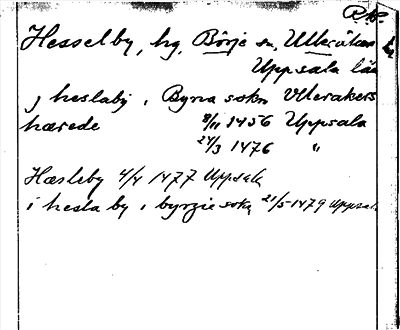 R.A.
Hesselby, hg, Börje sn, Ulleråker
Uppsala län
j heslaby i Byrva sokn Vllerakers
hærede 8/11 1456 Uppsala
24/3 1476 "
Hæsleby 4/4 1477 Uppsala
i hesla by i byrgie sokn 21/5 1479 Uppsala